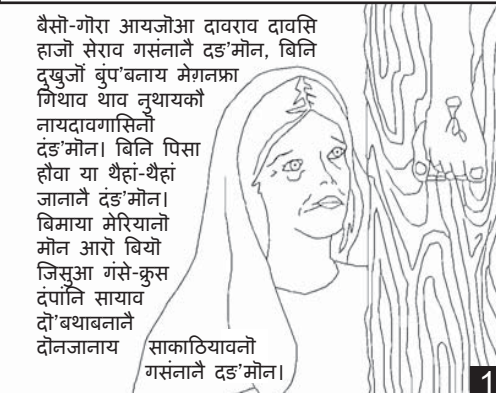 बैसॊ-गॊरा आयजॊआ दावराव दावसि
हाजॊ सेराव गसंनानै दङ'मॊन, बिनि
दुखुजॊं बुंप'बनाय मेग़नफ्रा
गिथाव थाव नुथायकौ
नायदावगासिनॊ
दंङ'मॊन। बिनि पिसा
हौवा या थैहां-थैहां
जानानै दंङ'मॊन।
बिमाया मेरियानॊ
मॊन आरॊ बियॊ
जिसुआ गंसे-क्रुस
दंपांनि सायाव
दॊ'बथाबनानै
दॊनजानाय साकाठियावनॊ
गसंनानै दङ'मॊन।
1